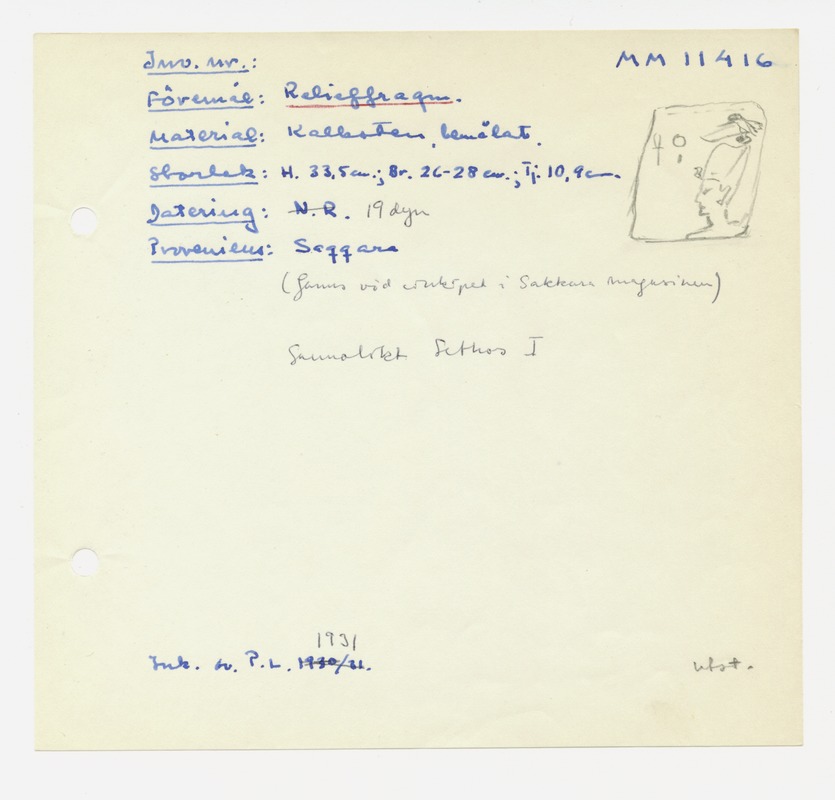 Inv. nr.: MM 11416
Föremål: Relieffragm.
Material: Kalksten, bemålat.
Storlek: H. 33,5 cm.; Br. 26-28 cm.; Tj. 10,9 cm.
Datering: N.R. 19 dyn
Proveniens: Saqqara
(fanns vid inköpet i Sakkara magasinen)
Sannolikt Sethos I
1931
Ink. av P.L. 1930/31.
utst.